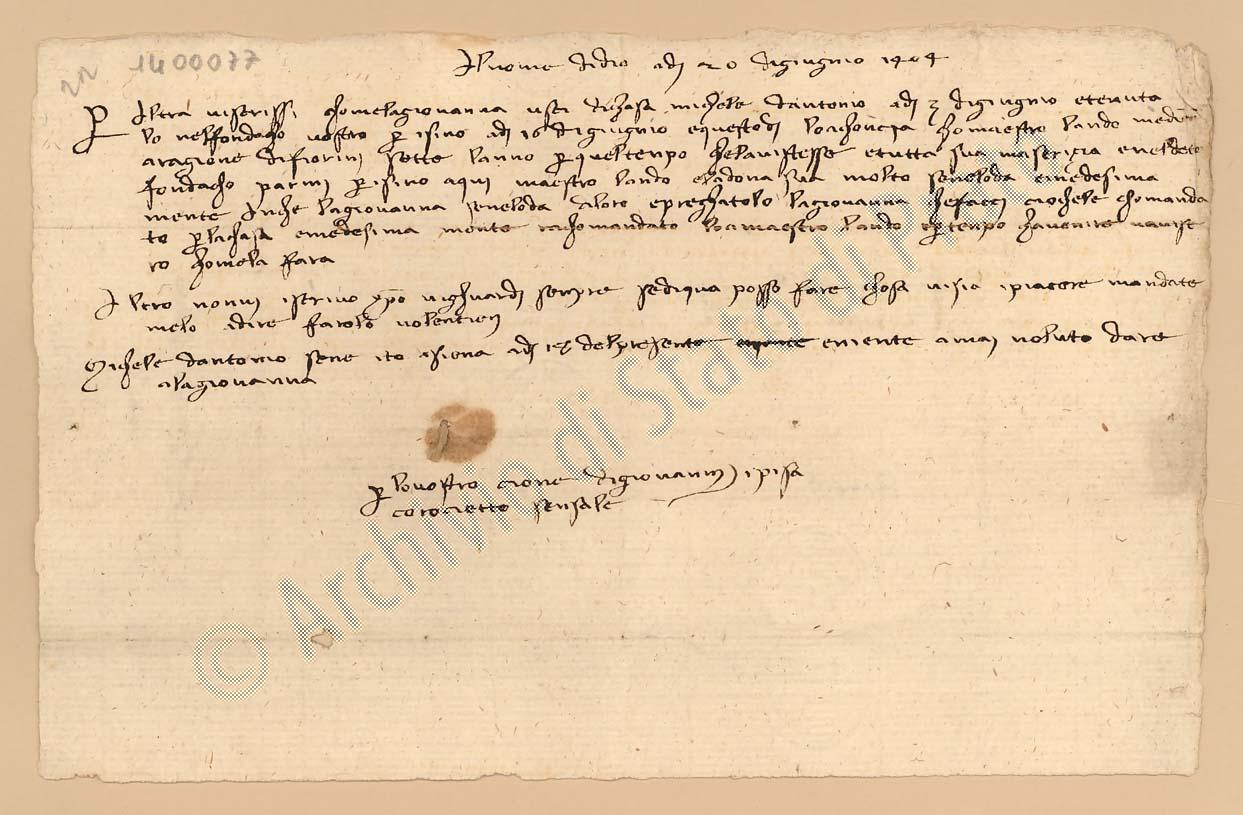 22 1400077
Al nome di dio adj 20 di giugnio 1404
Per altra vi scrissi chome la giovanna uscì di chasa michele d'antonio adj 3 di giugnio e tenuta
la nel fondacho vostro per isino adj 10 di giugnio e questo dj l'achoncia cho maestro lando medicho
a ragione di fiorinj sette l'anno per quel tenpo che la vi stesse e tutta sua maseriçia e nel deto
fondacho parmi per isino a qui maestro lando e la dona sua molto se ne loda e medesima
mente anche la giovanna se ne loda di loro e preghatolo la giovanna che facci ciò che l'è chomanda
to per la chasa e medesima mente rachomandato la a maestro lando per tenpo ch'avenire v'avise
rò chome la farà
Altro non vi iscrivo xpo vi ghuardj senpre se di qua posso fare chosa vi sia i piacere mandate
melo a dire farolo volentierj
Michele d'antonio se ne ito a siena adj 18 del presente e niente à maj voluto dare
a la giovanna
per lo vostro cione di giovannj i pisa
sensale
© Archivio di Stato di Prato